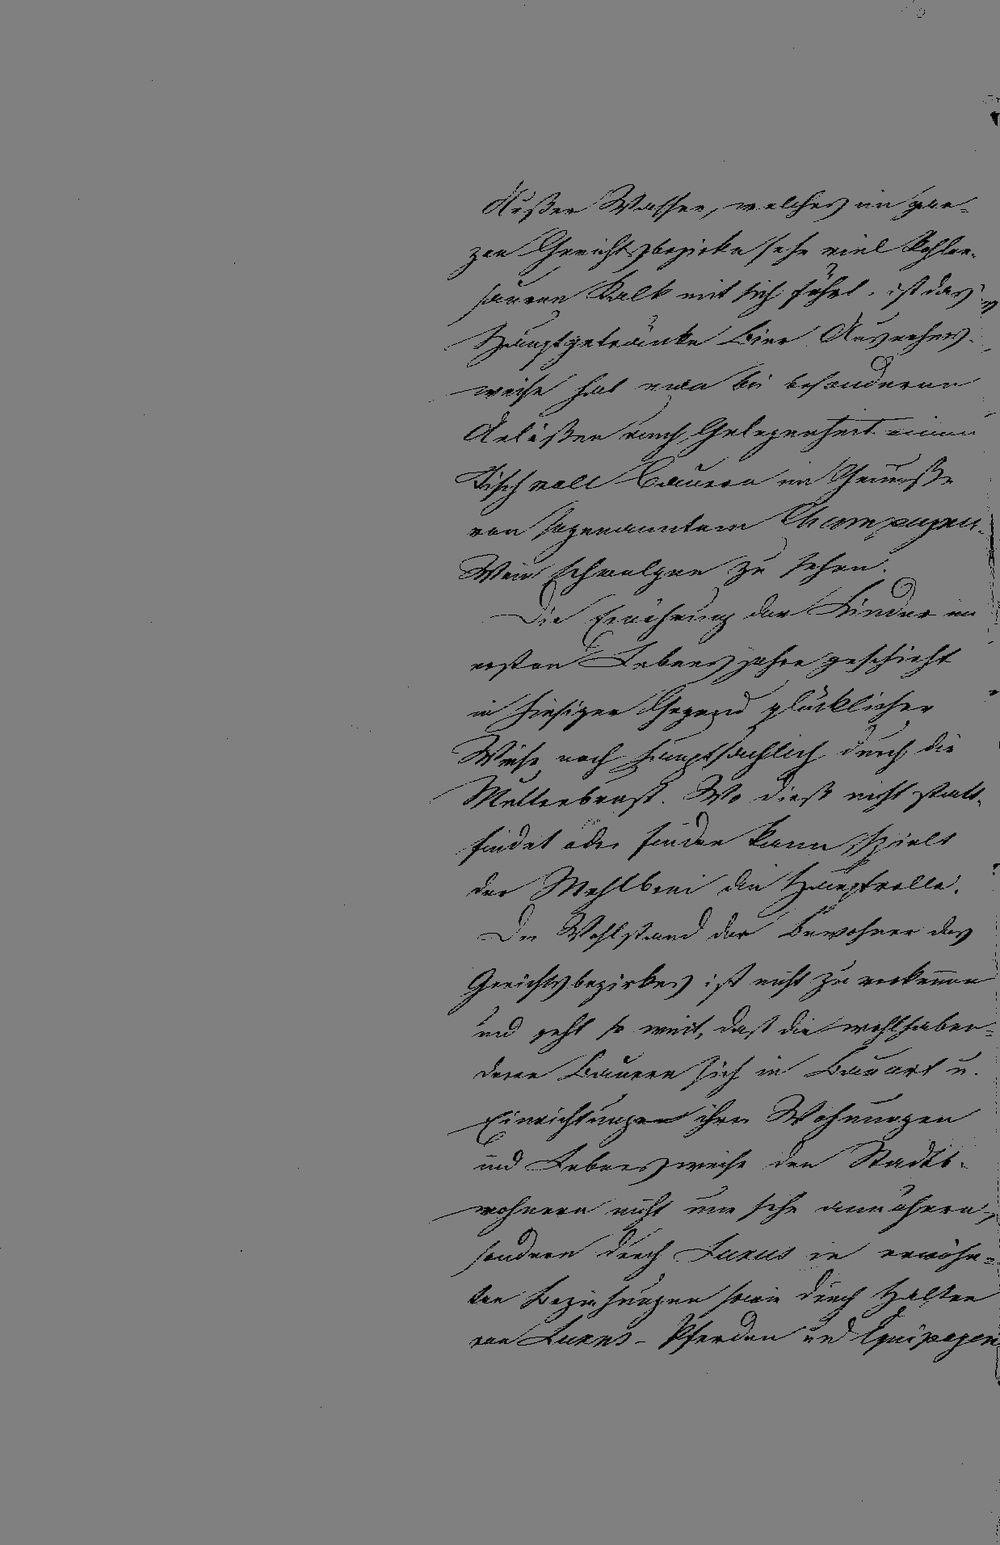 Außer Wasser, welches im gan-
zen Gerichtsbezirke sehr viel kohlen-
sauren Kalk mit sich führt, ist das
Hauptgetränke Bier. Ausnahms-
weise hat man bei besonderen
Anläßen auch Gelegenheit einen
Tisch voll Bauern im Genuße
von sogenanntem Champagner-
Wein schwelgen zu sehen.
Die Ernährung der Kinder im
ersten Lebensjahre geschieht
in hiesiger Gegend glücklicher
Weise noch hauptsächlich durch die
Mutterbrust. Wo dieß nicht statt-
findet oder finden kann, spielt
der Mehlbrei die Hauptrolle.
Der Wohlstand der Bewohner des
Gerichtsbezirkes ist nicht zu verkennen
und geht so weit, daß die wohlhaben-
deren Bauern sich in Bauart u.
Einrichtungen ihrer Wohnungen
und Lebensweise den Stadtb-
wohnern nicht nur sehr annähern,
sondern durch Luxus in erwähn-
ten Beziehungen sowie durch Halten
von Luxus-Pferden und Equipagen